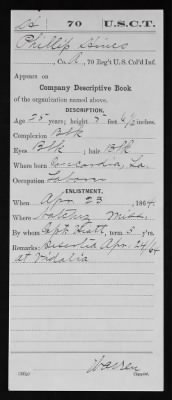 70 U.S.C.T.
Phillip
, Co. A, 70 Reg't U.S. Col'd Inf.
Appears on
Company Descriptive Book
of the organization named above.
DESCRIPTION.
Age 25 years; height 5 feet inches.
Complexion Blk
Eyes Blk; hair Blk
Where born Concordia, La.
Occupation Laborer
ENLISTMENT.
When Apr. 23, 1864.
Where Natchez Miss.
By whom Capt. Hiatt; term 3 y'rs.
Remarks: Deserted Apr. 24/64
at Vidalia
Copyist.